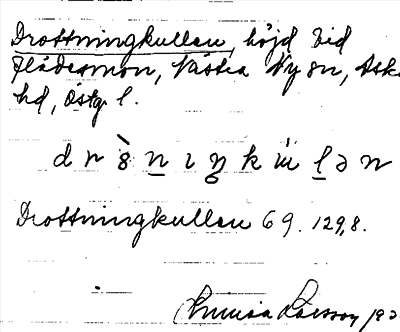 Drottningkullen, höjd vid
Flädermon, Västra Ny sn, Aska
hd, Östg. l.
d r 8̀ n̲ ı ŋ k ù l̲ ə n
Drottningkullen 69. 129,8.
Larsson 192